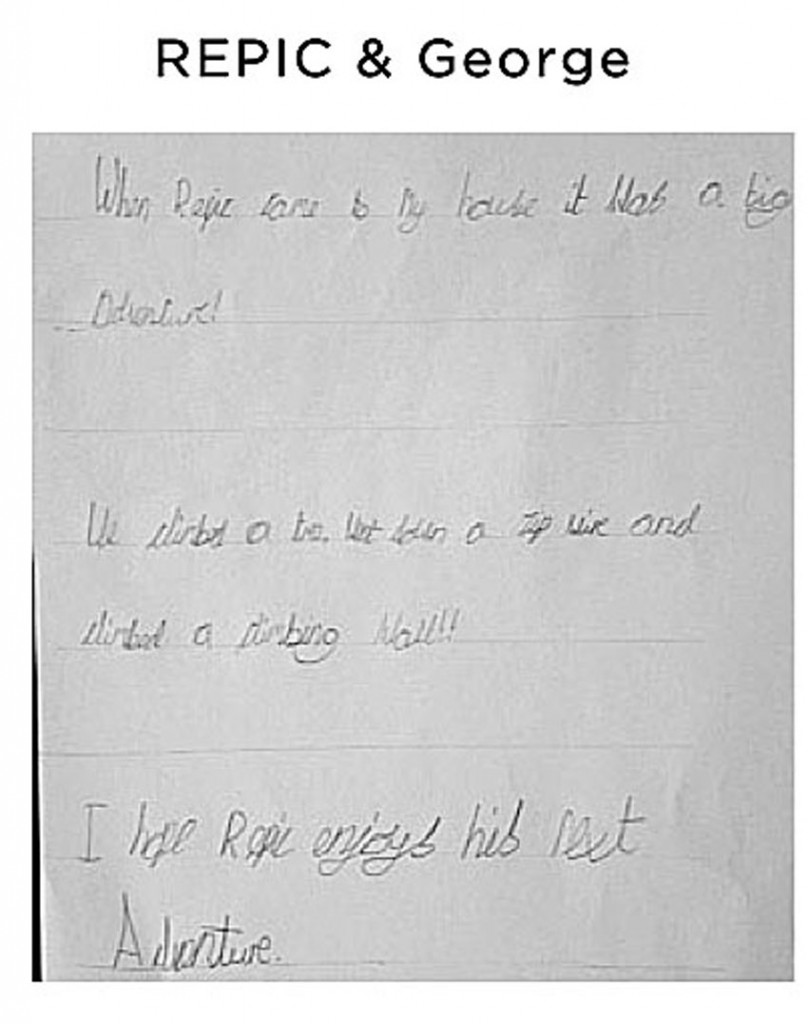 REPIC & George
When Repic came to my house it was a big
Adventure!
We climbed a tree. Went down a zip wire and
climbed a climbing wall!!
I hope Repic enjoys his next
Adventure.